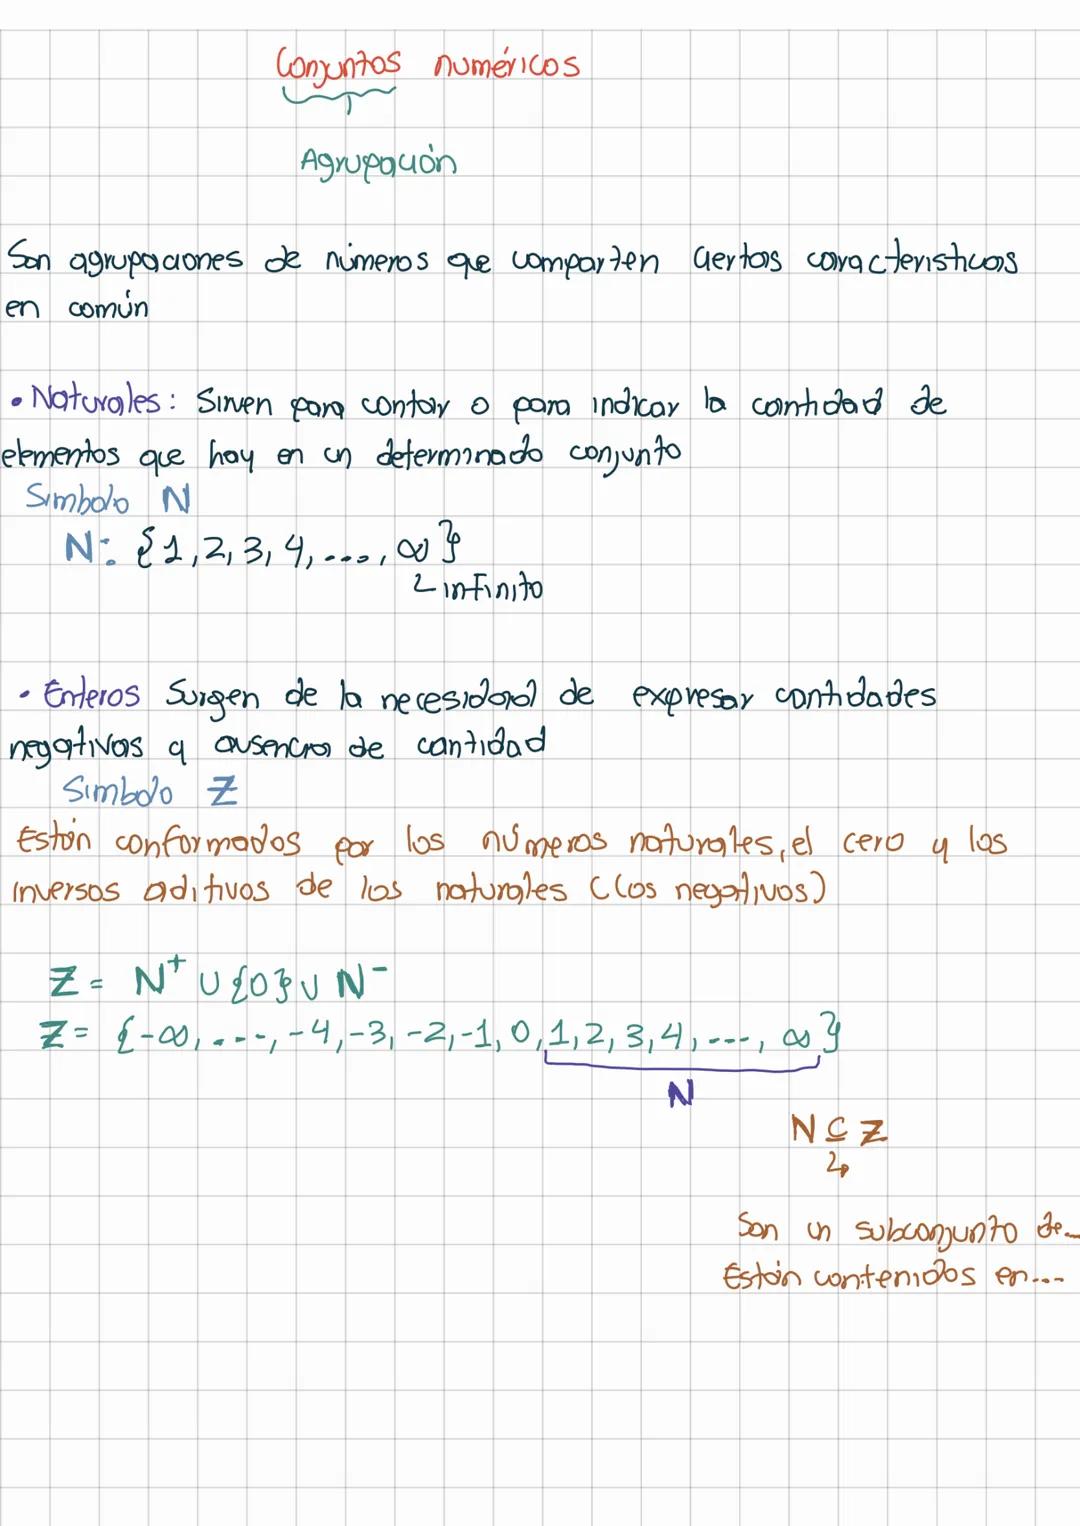 Conjuntos numéricos
Agrupación
Son agrupaciones de números que comparten ciertas características
en común
• Naturales: Sirven para contar o para indicar la cantidad de
elementos que hay en un determinado conjunto
Simbolo N
N: {1,2,3,4,...,∞}
infinito
• Enteros Surgen de la necesidad de expresar cantidades
negativas y ausencia de cantidad
Simbolo Z
Están conformados por los números naturales, el cero y los
inversos aditivos de los naturales (los negativos)
Z = N⁺ ∪ {0} ∪ N⁻
Z = {-∞,...,-4,-3,-2,-1,0,1,2,3,4,...,∞}
N
N ⊆ Z
Son un subconjunto de...
Están contenidos en...